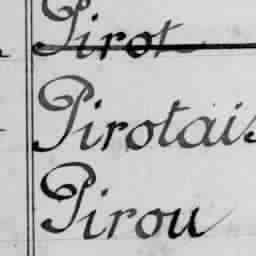 Pirot
Pirotais
Pirou